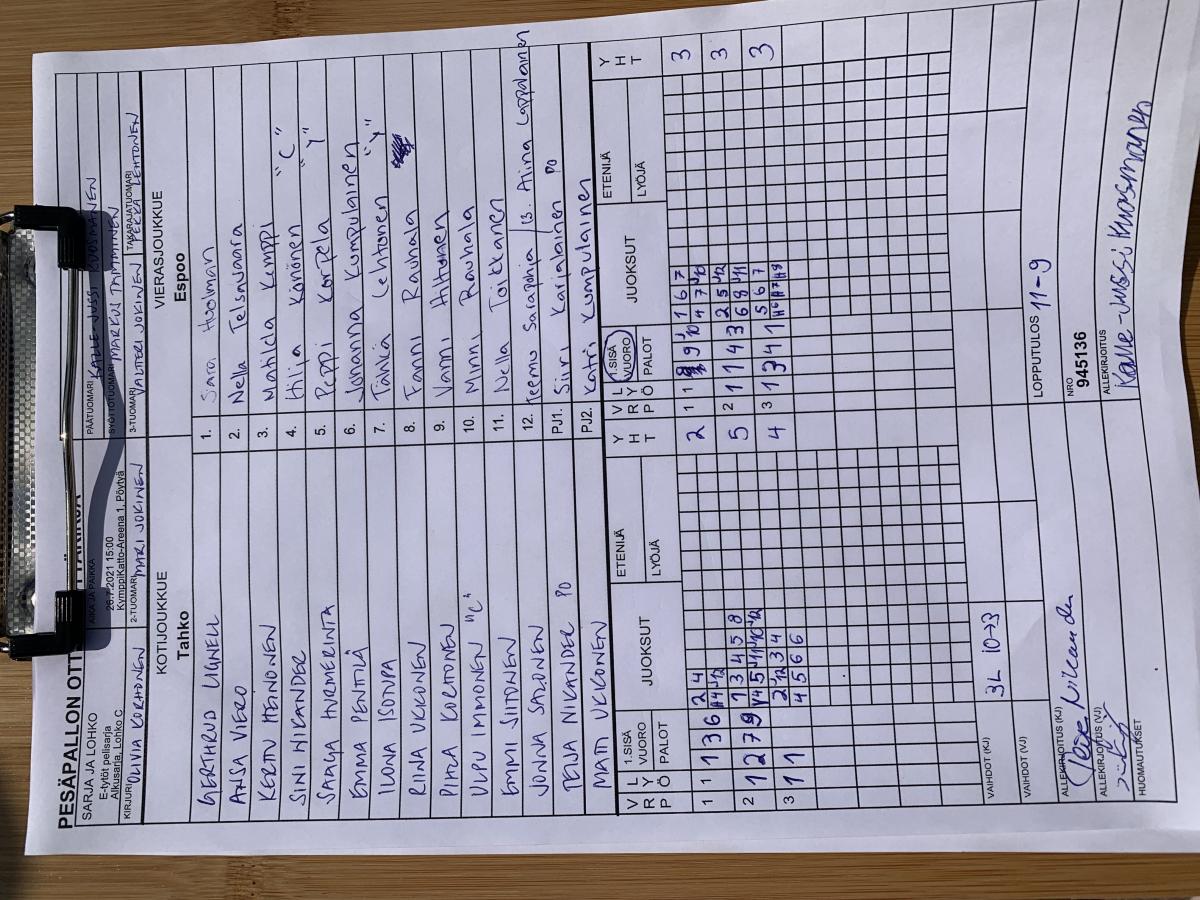 PESÄPALLON OTT
SARJA JA LOHKO
E-tytöt pelisarja
Alkusarja, Lohko C
AIKA JA PAIKKA
26.7.2021 15:00
KymppiKatto-Areena 1, Pöytyä
PÄÄTUOMARI KALLE-JUSSI KUOSMANEN
SYÖTTÖTUOMARI MARKUS TAMMINEN
KIRJURI OLIVIA KORHONEN
2-TUOMARI MARI JOKINEN
3-TUOMARI VALTTERI JOKINEN
TAKARAJATUOMARI PEKKA LEHTONEN
KOTIJOUKKUE
Tahko
VIERASJOUKKUE
Espoo
GERTHRUD LIGNELL 1. Sara Huolman
2. Nella Telsavaara
KERTTU HEINONEN 3. Matilda Kemppi "C"
SINI NIKANDER 4. Hilja Könönen
SAAGA HURMERINTA 5. Peppi Korpela "Y"
EMMA PENTILÄ 6. Johanna Kumpulainen
ILONA ISOTUPA 7. Lehtonen "Y"
RIINA UKKONEN 8. Fanni Rauhala
PIHLA KORHONEN 9. Vanni Hiltunen
VILPU IMMONEN "C" 10. Minni Rauhala
EMMI SIITONEN 11. Nella Toikkanen
JONNA SALONEN 12. Teemu Salapohja /13. Aina Lappalainen
TEIJA NIKANDER PO PJ1. Siiri Karjalainen PO
MATI UKKONEN PJ2. Katri Kumpulainen
V L
R Y
P Ö
1.SISÄ
VUORO
PALOT
JUOKSUT
ETENIJÄ
LYÖJÄ
Y
H
T
V L
R Y
P Ö
1.SISÄ
VUORO
PALOT
JUOKSUT
ETENIJÄ
LYÖJÄ
Y
H
T
1 1 1 3 6 2 4 2
2 1 2 7 9 1 3 4 5 8 5
3 1 1 2 3 4 4
4 5 6 6
1 1 9 10 1 6 7 3
2 1 1 4 3 2 5 3
3 1 3 4 1 5 6 7 3
VAIHDOT (KJ) 3L 10→3
VAIHDOT (VJ)
LOPPUTULOS 11-9
ALLEKIRJOITUS (KJ) Nikander
NRO
945136
ALLEKIRJOITUS (VJ)
ALLEKIRJOITUS
Kalle-Jussi Kuosmanen
HUOMAUTUKSET